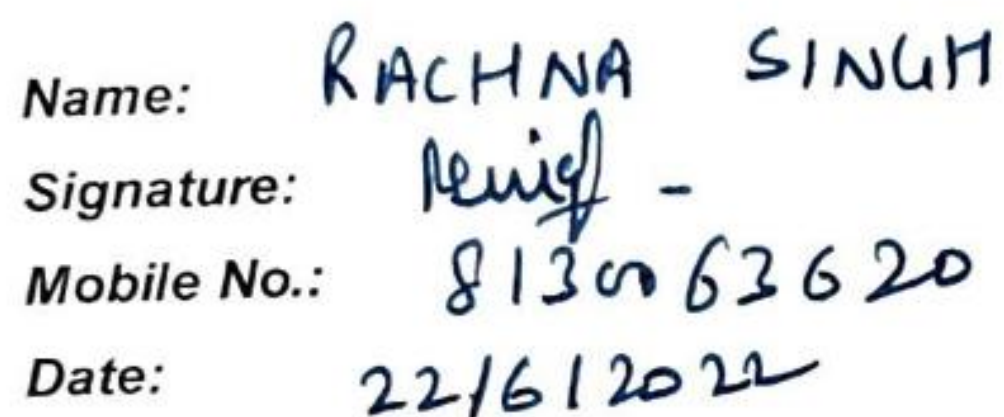 Name: RACHNA SINGH
Signature:
Mobile No.: 8130063620
Date: 22/6/2022